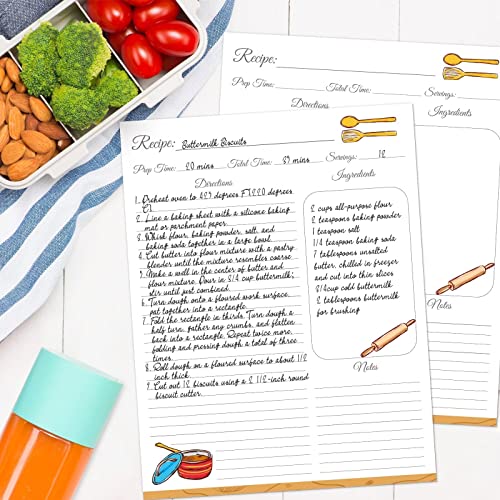 Recipe:
Prep Time: Total Time: Servings:
Directions Ingredients
Notes
Recipe: Buttermilk Biscuits
Prep Time: 20 mins Total Time: 37 mins Servings: 12
Directions
1. Preheat oven to 425 degrees F (220 degrees
C).
2. Line a baking sheet with a silicone baking
mat or parchment paper.
3. Whisk flour, baking powder, salt, and
baking soda together in a large bowl.
4. Cut butter into flour mixture with a pastry
blender until the mixture resembles coarse
5. Make a well in the center of butter and
flour mixture. Pour in 3/4 cup buttermilk;
stir until just combined.
6. Turn dough onto a floured work surface,
pat together into a rectangle.
7. Fold the rectangle in thirds. Turn dough a
half turn, gather any crumbs, and flatten
back into a rectangle. Repeat twice more,
folding and pressing dough a total of three
times.
8. Roll dough on a floured surface to about 1/2
inch thick.
9. Cut out 12 biscuits using a 2 1/2-inch round
biscuit cutter.
Ingredients
2 cups all-purpose flour
2 teaspoons baking powder
1 teaspoon salt
1/4 teaspoon baking soda
7 tablespoons unsalted
butter, chilled in freezer
and cut into thin slices
3/4cup cold buttermilk
2 tablespoons buttermilk
for brushing
Notes